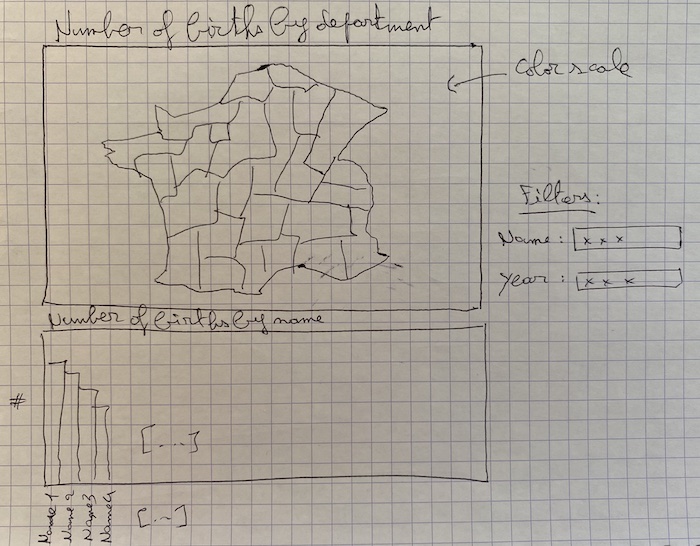 Number of births by department
Color scale
Filters:
Name: x x x
Year: x x x
Number of births by name
#
[....]
Name 1
Name 2
Name 3
Name 4
[...]